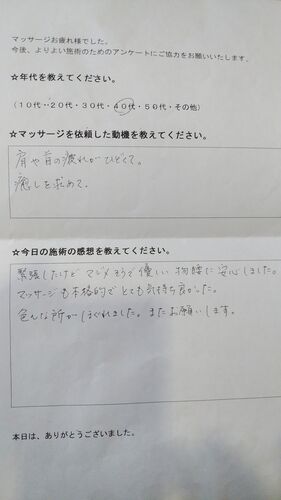 マッサージお疲れ様でした。
今後、よりよい施術のためのアンケートにご協力をお願いいたします。
☆年代を教えてください。
（10代・・20代・30代・40代・50代・その他）
☆マッサージを依頼した動機を教えてください。
肩や首の疲れがひどくて。
癒しを求めて。
☆今日の施術の感想を教えてください。
緊張したけど マジメそうで優しい 物腰に 安心しました。
マッサージも本格的でとても気持ち良かった。
色んな所が ほぐれました。またお願いします。
本日は、ありがとうございました。